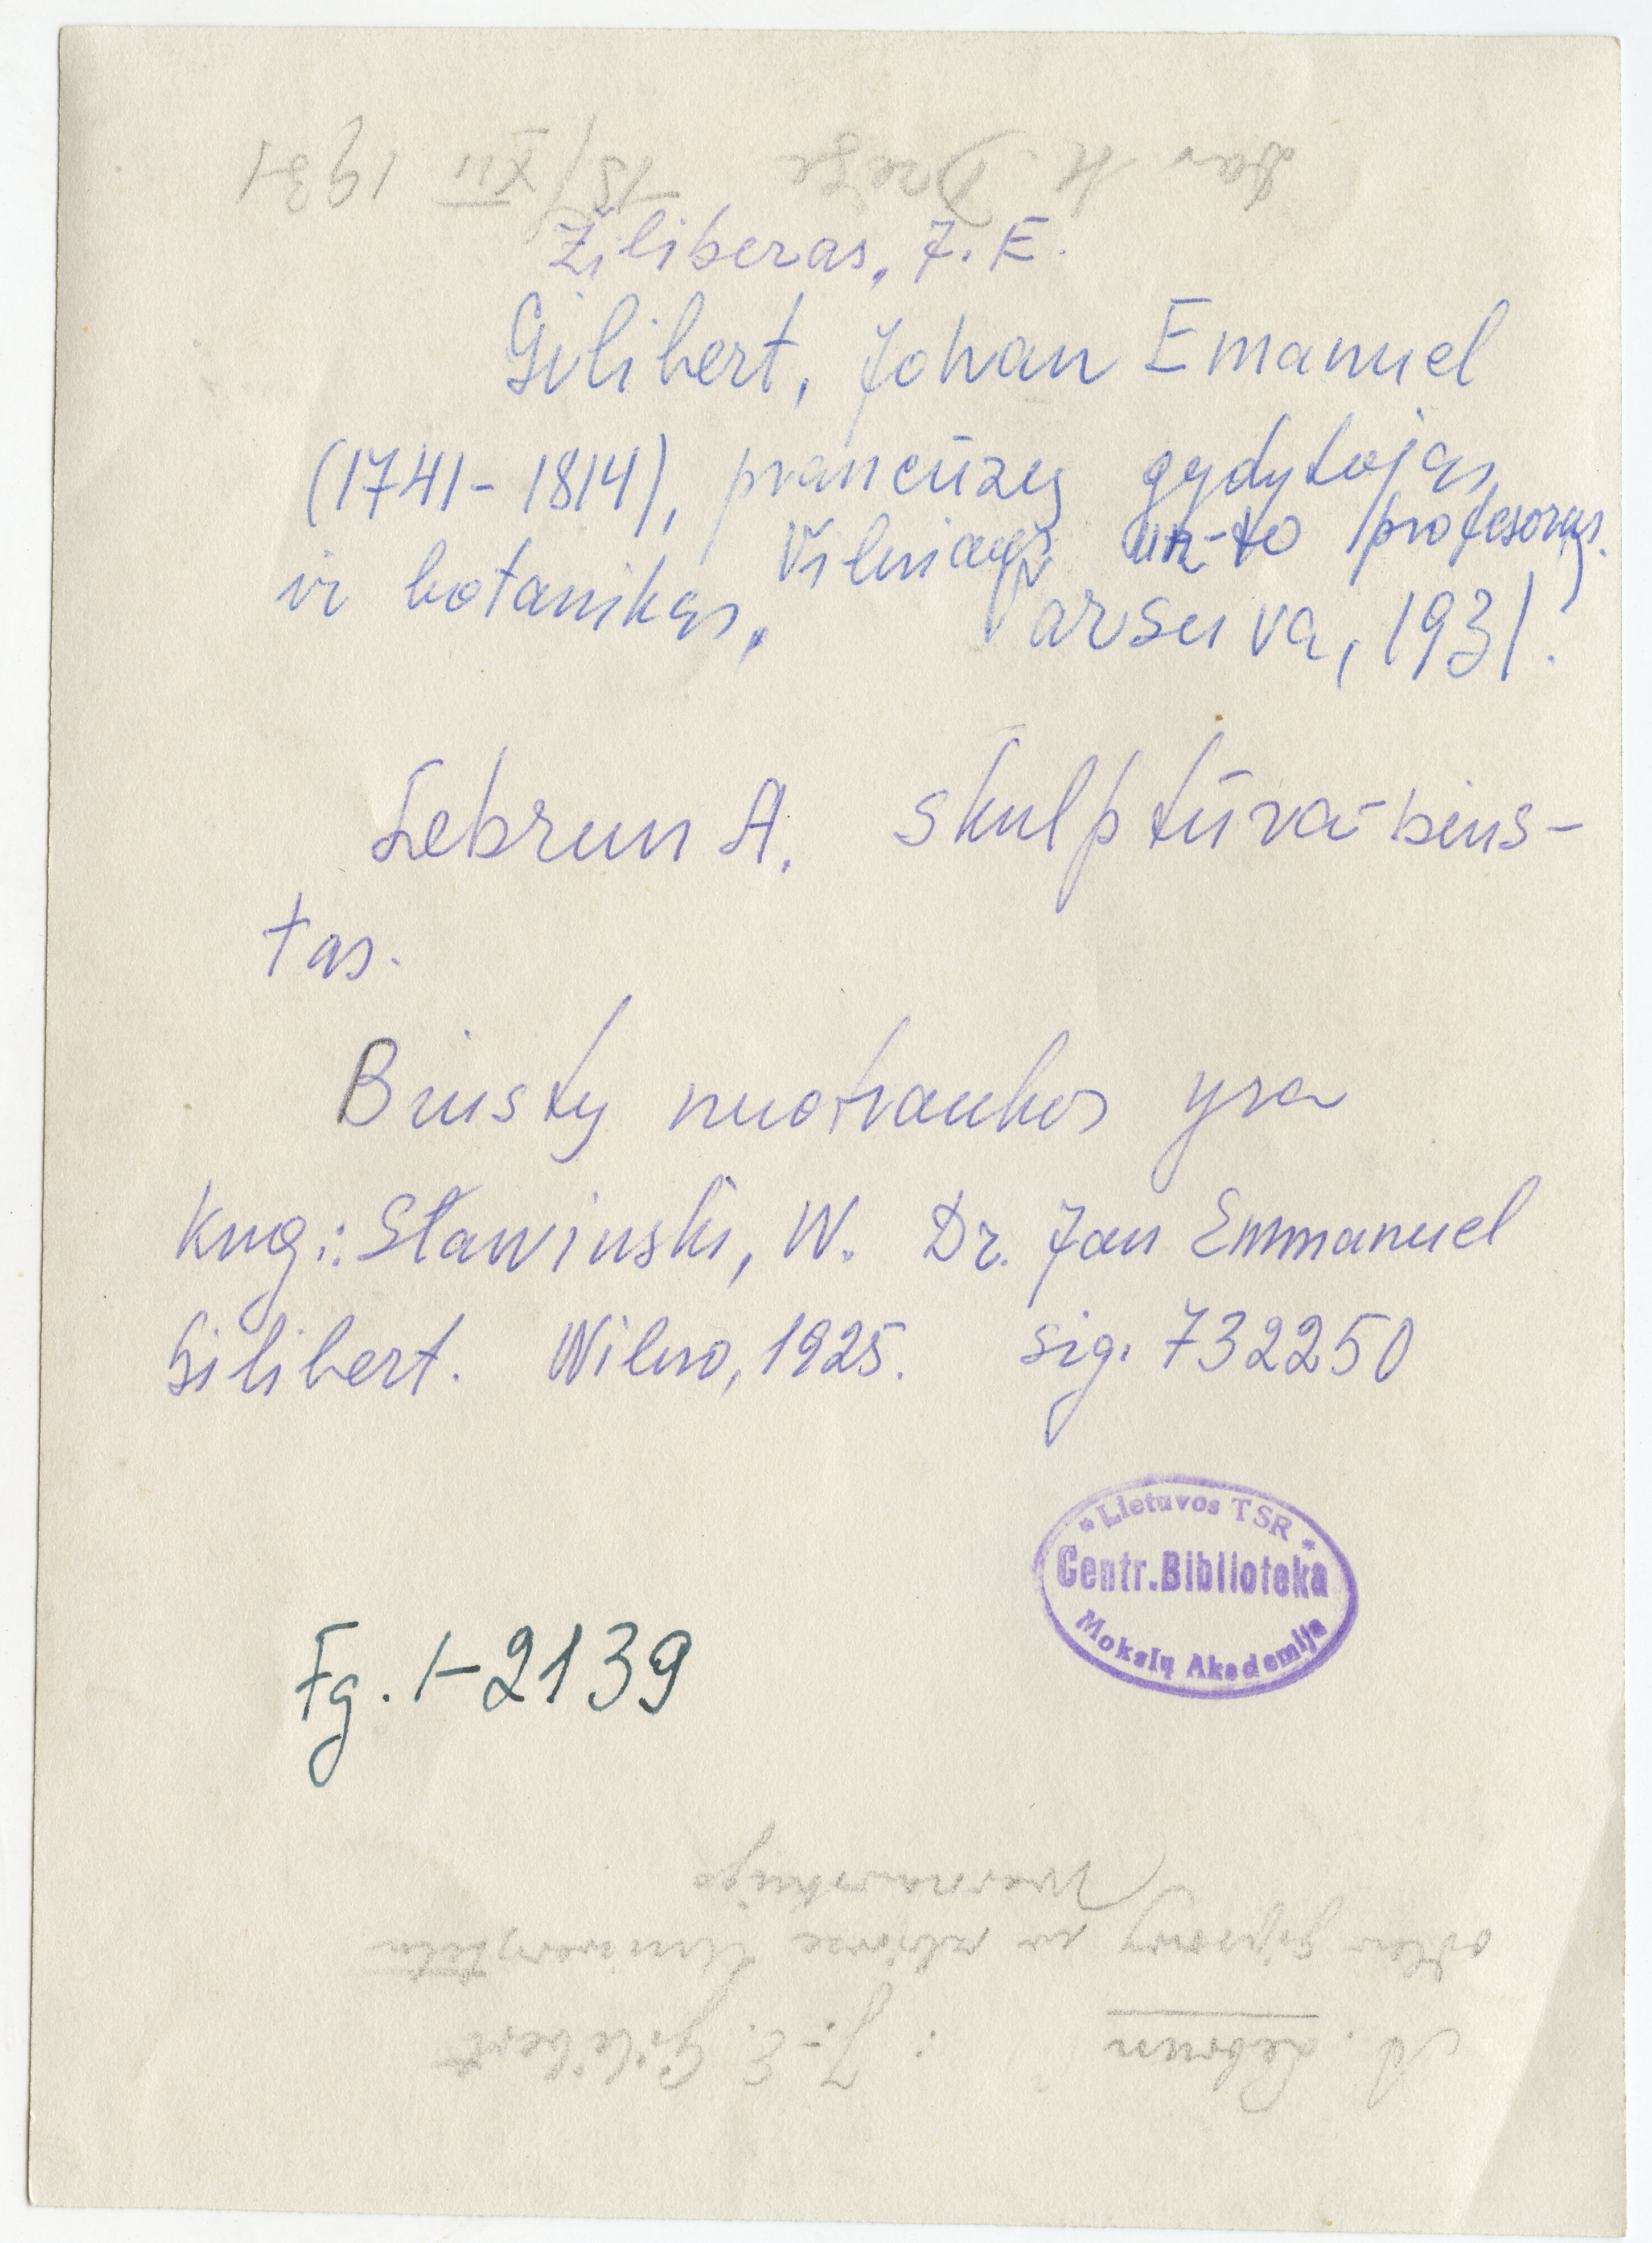 Dar M. Dreže 18/XII 1931
Žiliberas, J. E.
Gilibert, Johan Emanuel
(1741-1814), prancūzų gydytojas
ir botanikas, Vilniaus un-to profesorius.
Varšuva, 1931.
Lebrun A. Skulptūra-bius-
tas.
Biustų nuotraukos yra
kng.: Sławinski, W. Dr. Jan Emmanuel
Gilibert. Wilno, 1925. Sig. 732250
* Lietuvos TSR *
Centr. Biblioteka
Mokslų Akademija
Fg. 1-2139
A. Lebrun : J.-E. Gilibert
odlew gipsowy w zbiorze Uniwersytetu
Warszawskiego